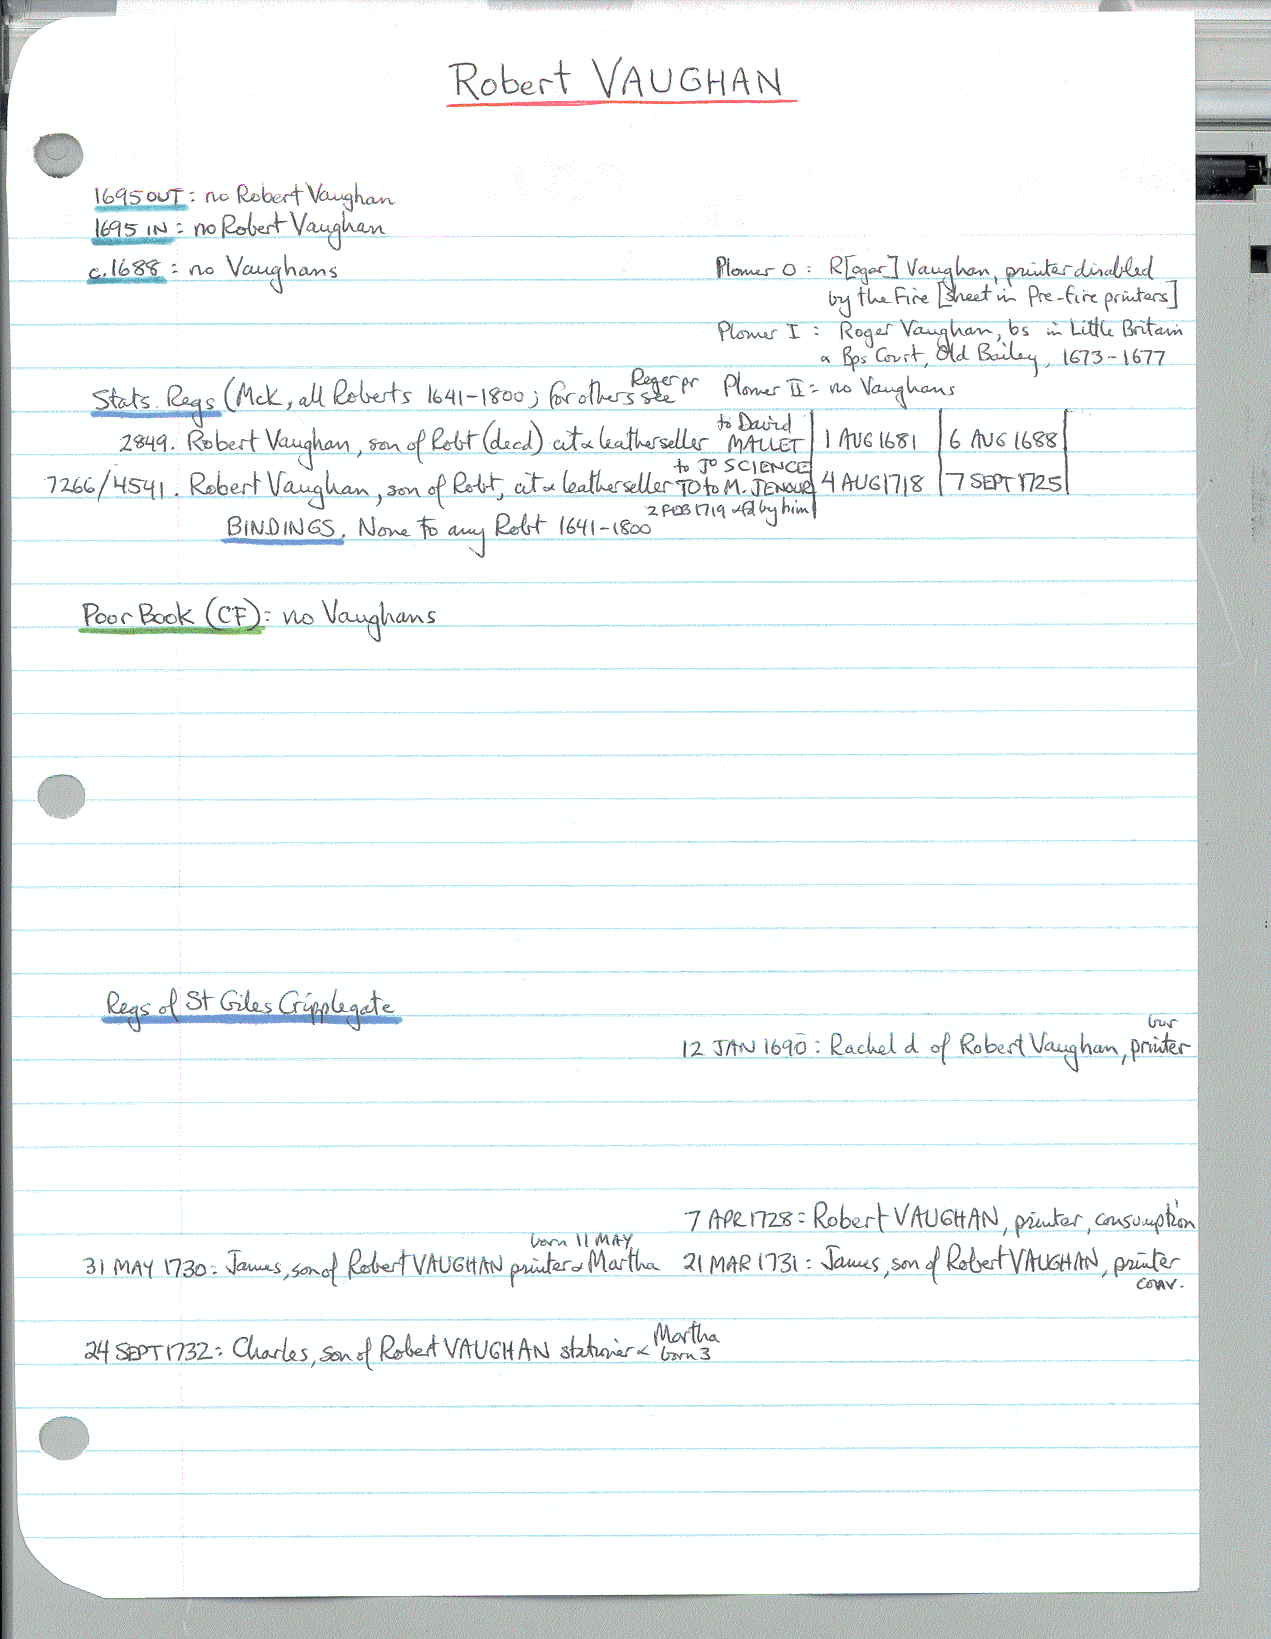 Robert VAUGHAN
1695 OUT: no Robert Vaughan
1695 IN: no Robert Vaughan
c.1688: no Vaughans
Plomer O: R[oger] Vaughan, printer disabled
by the Fire [sheet in Pre-fire printers]
Plomer I: Roger Vaughan, bs in Little Britain
& Bps Court, Old Bailey, 1673-1677
Plomer II: no Vaughans
Stats. Regs (McK, all Roberts 1641-1800; for others see Roger pr
2849. Robert Vaughan, son of Robt (decd) cit & leatherseller to David MALLET | 1 AUG 1681 | 6 AUG 1688 |
7266/4541. Robert Vaughan, son of Robt, cit & leatherseller to Jo SCIENCE TO to M. JENOUR | 4 AUG 1718 | 7 SEPT 1725 |
2 FEB 1719 & fd by him
BINDINGS. None to any Robt 1641-1800
Poor Book (CF): no Vaughans
Regs of St Giles Cripplegate
bur
12 JAN 1690: Rachel d of Robert Vaughan, printer
7 APR 1728: Robert VAUGHAN, printer, consumption
born 11 MAY
31 MAY 1730: James, son of Robert VAUGHAN printer & Martha
21 MAR 1731: James, son of Robert VAUGHAN, printer
conv.
24 SEPT 1732: Charles, son of Robert VAUGHAN stationer & Martha
born 3